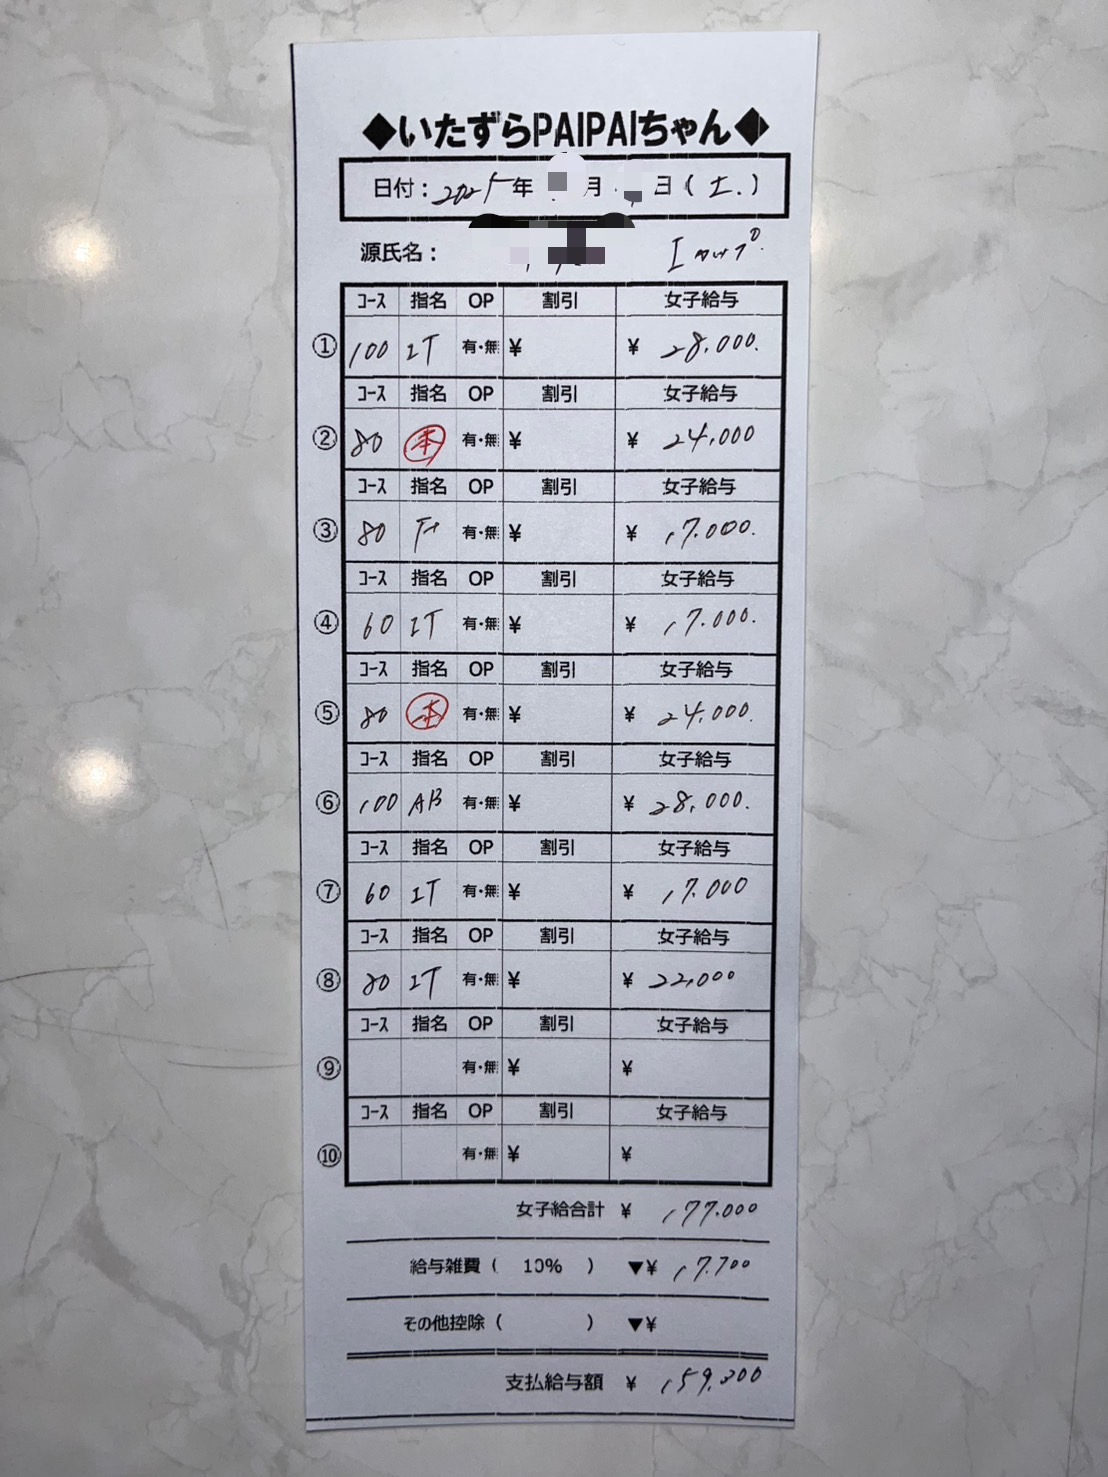 ◆いたずらPAIPAIちゃん◆
日付：2025年 月 日(土.)
源氏名： Iカップ
コース 指名 OP 割引 女子給与
① 100 IT 有・無 ¥ ¥ 28,000.
コース 指名 OP 割引 女子給与
② 80 本 有・無 ¥ ¥ 24,000
コース 指名 OP 割引 女子給与
③ 80 有・無 ¥ ¥ 17.000.
コース 指名 OP 割引 女子給与
④ 60 IT 有・無 ¥ ¥ 17.000.
コース 指名 OP 割引 女子給与
⑤ 80 本 有・無 ¥ ¥ 24,000.
コース 指名 OP 割引 女子給与
⑥ 100 AB 有・無 ¥ ¥ 28,000.
コース 指名 OP 割引 女子給与
⑦ 60 IT 有・無 ¥ ¥ 17.000
コース 指名 OP 割引 女子給与
⑧ 80 IT 有・無 ¥ ¥ 22,000
コース 指名 OP 割引 女子給与
⑨ 有・無 ¥ ¥
コース 指名 OP 割引 女子給与
⑩ 有・無 ¥ ¥
女子給合計 ¥ 177.000
給与雑費( 10% ) ▼¥ 17.700
その他控除( ) ▼¥
支払給与額 ¥ 159,300